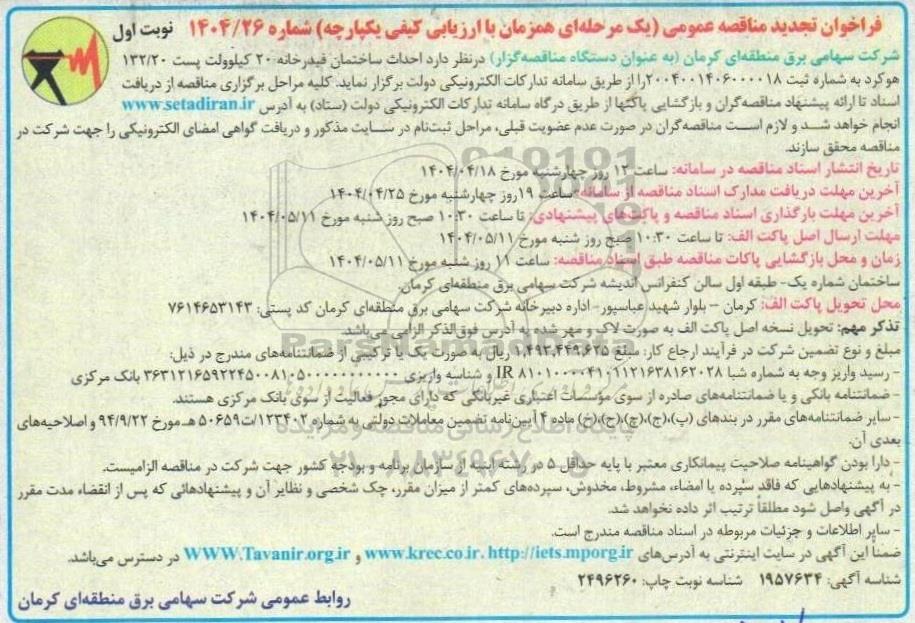 فراخوان تجدید مناقصه عمومی (یک مرحله‌ای همزمان با ارزیابی کیفی یکپارچه) شماره ۱۴۰۴/۲۶ نوبت اول
شرکت سهامی برق منطقه‌ای کرمان (به عنوان دستگاه مناقصه‌گزار) درنظر دارد احداث ساختمان فیدرخانه ۲۰ کیلوولت پست ۱۳۲/۲۰
هوکرد به شماره ثبت ۲۰۰۴۰۰۱۴۰۶۰۰۰۰۱۸را از طریق سامانه تدارکات الکترونیکی دولت برگزار نماید. کلیه مراحل برگزاری مناقصه از دریافت
اسناد تا ارائه پیشنهاد مناقصه‌گران و بازگشایی پاکتها از طریق درگاه سامانه تدارکات الکترونیکی دولت (ستاد) به آدرس www.setadiran.ir
انجام خواهد شد و لازم است مناقصه‌گران در صورت عدم عضویت قبلی، مراحل ثبت‌نام در سایت مذکور و دریافت گواهی امضای الکترونیکی را جهت شرکت در
مناقصه محقق سازند.
تاریخ انتشار اسناد مناقصه در سامانه: ساعت ۱۲ روز چهارشنبه مورخ ۱۴۰۴/۰۴/۱۸
آخرین مهلت دریافت مدارک اسناد مناقصه از سامانه: ساعت ۱۹روز چهارشنبه مورخ ۱۴۰۴/۰۴/۲۵
آخرین مهلت بارگذاری اسناد مناقصه و پاکت‌های پیشنهادی: تا ساعت ۱۰:۳۰ صبح روز شنبه مورخ ۱۴۰۴/۰۵/۱۱
مهلت ارسال اصل پاکت الف: تا ساعت ۱۰:۳۰ صبح روز شنبه مورخ ۱۴۰۴/۰۵/۱۱
زمان و محل بازگشایی پاکات مناقصه طبق اسناد مناقصه: ساعت ۱۱ روز شنبه مورخ ۱۴۰۴/۰۵/۱۱
ساختمان شماره یک- طبقه اول سالن کنفرانس اندیشه شرکت سهامی برق منطقه‌ای کرمان.
محل تحویل پاکت الف: کرمان – بلوار شهید عباسپور- اداره دبیرخانه شرکت سهامی برق منطقه‌ای کرمان کد پستی: ۷۶۱۴۶۵۳۱۴۳
تذکر مهم: تحویل نسخه اصل پاکت الف به صورت لاک و مهر شده به آدرس فوق‌الذکر الزامی می‌باشد.
مبلغ و نوع تضمین شرکت در فرآیند ارجاع کار: مبلغ ۱,۴۹۲,۴۴۹,۶۲۵ ریال به صورت یک یا ترکیبی از ضمانتنامه‌های مندرج در ذیل:
- رسید واریز وجه به شماره شبا IR ۸۱۰۱۰۰۰۰۴۱۰۱۱۲۱۶۳۸۱۶۲۰۲۸ و شناسه واریزی بانک مرکزی
- ضمانتنامه بانکی و یا ضمانتنامه‌های صادره از سوی مؤسسات اعتباری غیربانکی که دارای مجوز فعالیت از سوی بانک مرکزی هستند.
- سایر ضمانتنامه‌های مقرر در بندهای (پ)،(ج)،(چ)،(ح)،(خ) ماده ۴ آیین‌نامه تضمین معاملات دولتی به شماره ۱۲۳۴۰۲/ت۵۰۶۵۹ هـ مورخ ۹۴/۹/۲۲ و اصلاحیه‌های
بعدی آن.
- دارا بودن گواهینامه صلاحیت پیمانکاری معتبر با پایه حداقل ۵ در رشته ابنیه از سازمان برنامه و بودجه کشور جهت شرکت در مناقصه الزامیست.
- به پیشنهادهایی که فاقد سپرده یا امضاء، مشروط، مخدوش، سپرده‌های کمتر از میزان مقرر، چک شخصی و نظایر آن و پیشنهادهائی که پس از انقضاء مدت مقرر
در آگهی واصل شود مطلقاً ترتیب اثر داده نخواهد شد.
- سایر اطلاعات و جزئیات مربوطه در اسناد مناقصه مندرج است.
ضمناً این آگهی در سایت اینترنتی به آدرس‌های www.krec.co.ir. http://iets.mporg.ir و WWW.Tavanir.org.ir در دسترس می‌باشد.
شناسه آگهی: ۱۹۵۷۶۳۴ شناسه نوبت چاپ: ۲۴۹۶۲۶۰
روابط عمومی شرکت سهامی برق منطقه‌ای کرمان
ParsNamadData